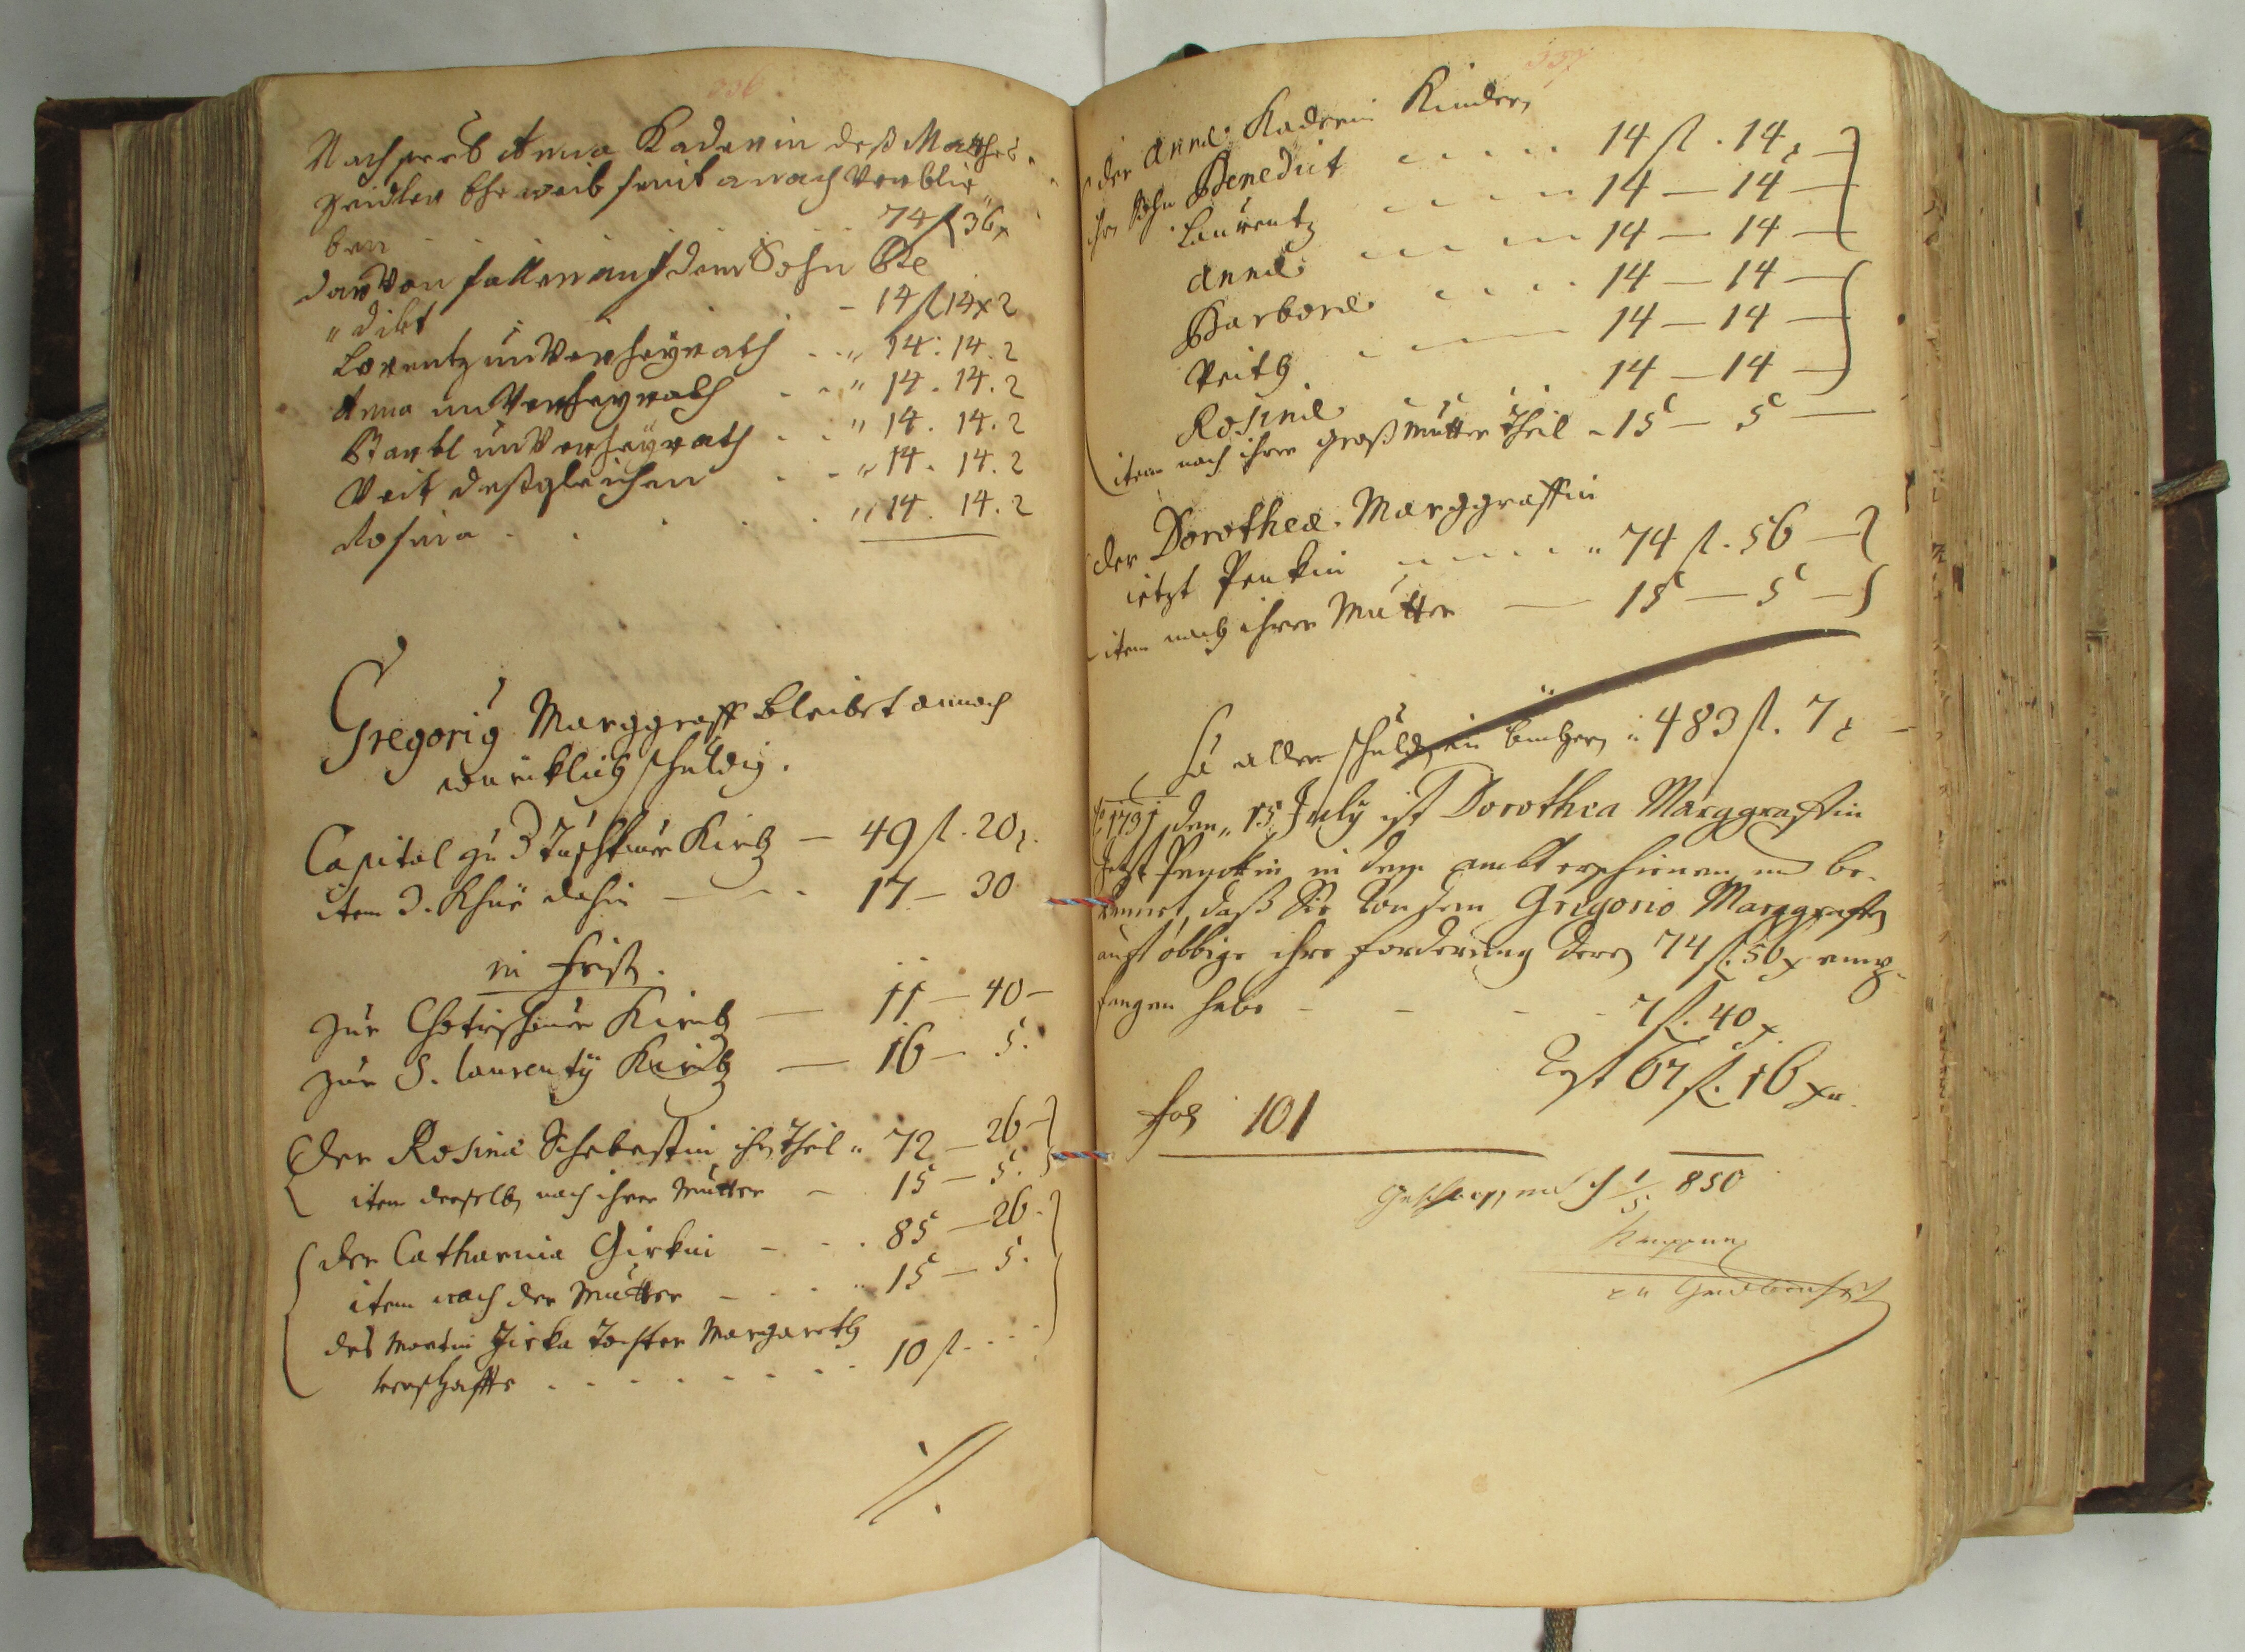 336
Nach der Anna Kaderin deß Mathes
Zeidler Eheweib seint annach verblie
ben 74 f 36 x
davon fallen auf dem Sohn Be
"dikt - 14 f 14 x 2
Lorentz unverheyrath . . " 14 . 14 . 2
Anna unverheyrath . . " 14 . 14 . 2
Barbl unverheyrath . . " 14 . 14 . 2
Veit deßgleichen . . " 14 . 14 . 2
Rosina . . . . " 14 . 14 . 2
Gregorig Marggraff bleibt annoch
würcklich schuldig.
Capital zu Kirch — 49 f. 20 x.
item 3. Khüe dahin — 17 — 30
in frist.
zur Kirch — 11 — 40 —
zur S. Laurenty Kirch — 16 — 5.
der Rosina Schebestin ihr Theil " 72 — 26 —
item derselb nach ihrer Mutter — 15 — 5.
der Catharina Girkin - - . 85 — 26.
item nach der Mutter - . . . 15 — 5.
des Martin Jirka Tochter Margareth
. . . . . . . 10 f. . . .
337
der Anna Kaderin Kinder,
ihr Sohn Benedict . . . . 14 f. 14 x —
Laurentz . . . . 14 — 14 —
Anna . . . . 14 — 14 —
Barbara . . . . 14 — 14 —
Veith . — 14 — 14 —
Rosina . . . . 14 — 14 —
item nach ihrer großmutter Theil - 15 — 5 —
der Dorothea Marggraffin
ietzt Penkin . . . . " 74 f. 56 —
item nach ihrer Mutter — 15 — 5 —
aller schulden in : 483 f. 7 x —
Ao 1731 den 15 July ist Dorothea Marggraffin
Jetzt Penckin in dem ambt erschienen und be-
kennet, daß Sie von dem Gregorio Marggraffen
auf obbige ihre forderung deren 74 f. 56 x emp-
fangen habe - - - - 7 f. 40 x
Rest 67 f. 16 xr.
fol 101
850